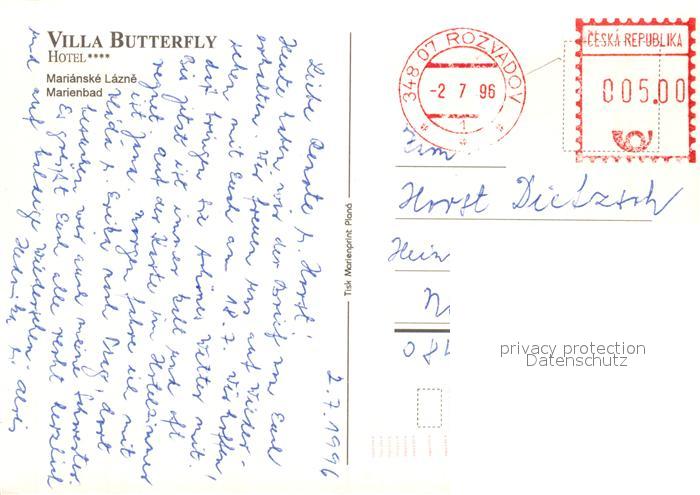 VILLA BUTTERFLY
HOTEL****
Mariánské Lázně
Marienbad
2.7.1996
Liebe Renate u. Horst!
Heute haben wir den Brief von Euch
erhalten. Wir freuen uns auf Wieder-
sehen mit Euch am 18.7. Wir hoffen,
daß bringen Sie schönes Wetter mit.
Bis jetzt ist immer kalt und oft
regnet. auf der Karte im Hotelzimmer
ist Jana. Morgen fahre ich mit
u. Erika nach dort
besuchen wir auch meine Schwester.
Es grüßt Euch alle recht herzlich
und auf baldige Wiedersehen.
Tisk Marienprint Planá
348 07 ROZVADOV
-2 7 96
1
ČESKÁ REPUBLIKA
005.00
Horst Dietzsch
Hein
084
privacy protection
Datenschutz